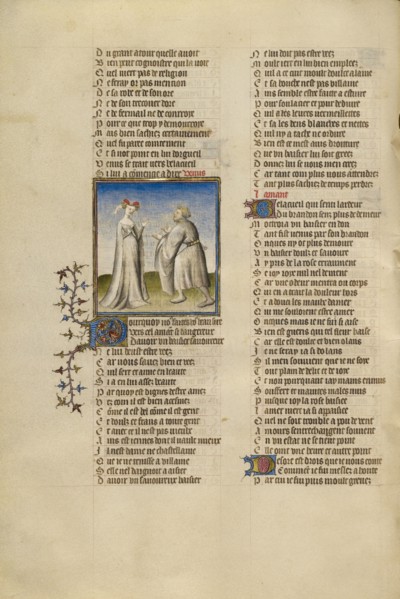 D u grant atour quelle avoit
B ien peut cognoistre qui la voit
Q uel niert pas de religion
N e feray or pas mencion
D e sa robe et de son ore
N e de son trecouer dore
N e de fermail ne de courroie
P our ce que trop y demourroie
M ais bien sachiez certainement
Q uel fu paree cointement
E t si not point en lui dorgueil
V enus se traire vers belacueil
S i lui a commence a dire Venus
Pourquoy vous faites vous beau sire
Vers cel amant si dangereux
Davoir un baisier savoureux
N e lui deust estre veez
C ar vous savez bien et veez
Q uil sert et aime en leaute
S i a en lui assez beaute
P ar quoy est dignes destre amez
V eez com il est bien acesmez
C omme il est bel comme il est gent
E t doulz et frans a toute gent
E t avec ce il nest pas vieulx
A ins est iennes dont il vault mieux
I l nest dame ne chastellaine
Q ue ie ne tenisse a villaine
S elle nel daignoit a aisier
D avoir un savoureux baisier
N e lui doit pas estre veez
M oult iert en lui bien emploiez
Q uil a ce cuit moult doulce alaine
E t sa bouche nest pas villaine
A ins semble estre faite a estuire
P our soulacier et pour deduire
Q uil a les levres vermeillettes
E t sa les dens blanches et nettes
Q uil ny a tache ne ordure
B ien est ce mest avis droiture
Q ue un baisier lui soit greez
D onnez lui se vous men creez
C ar tant com plus vous attendrez
T ant plus sachiez de temps perdrez
Lamant
Belacueil qui senti lardeur
Du brandon sans plus de demeur
M octroia un baisier en don
T ant fist venus par son brandon
O nques ny ot plus demoure
V n baisier doulz et savoure
A y pris de la rose erraument
S e ioy ioie nul nel demant
C ar une odeur mentra ou corps
Q ui en a trait la douleur hors
E t adouci les maulx damer
Q ui me souloient estre amer
O nques mais ne fui si aise
B ien est gueris qui tel fleur baise
C ar elle est doulce et bien olans
I e ne seray ia si dolans
S il men souvient que ie ne soie
T out plain de delit et de ioie
E t non pourquant iay mains ennuis
S ouffert et maintes males nuis
P uisque ioy la rose baisiee
L amer niert ia si apaisiee
Q uel ne soit trouble a pou de vent
A mours sentrechangent souvent
E n un estat ne se tient point
E lle oint une heure et autre point
Desore est drois que ie vous conte
Comment ie fui meslez a honte
P ar qui ie fui puis moult grevez